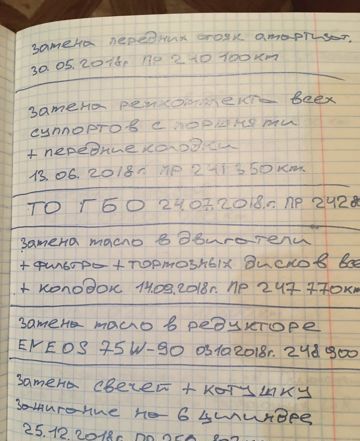 замена передних стояк амортизат.
30.05.2018г. ПР 240 100км
замена ремкомплекта всех
суппортов с поршняти
+ передние колодки
13.06.2018г. ПР 241 350км.
ТО ГБО 24.07.2018г. ПР 2428
замена масло в двигатели
+ фильтра + тормозных дисков все
+ колодок 14.09.2018г. ПР 247 770км
замена масло в редукторе
ENEOS 75W-90 03.10.2018г. 248 900
замена свечет + катушку
зажигание на 6 цилиндре
25.12.2018г. ПР